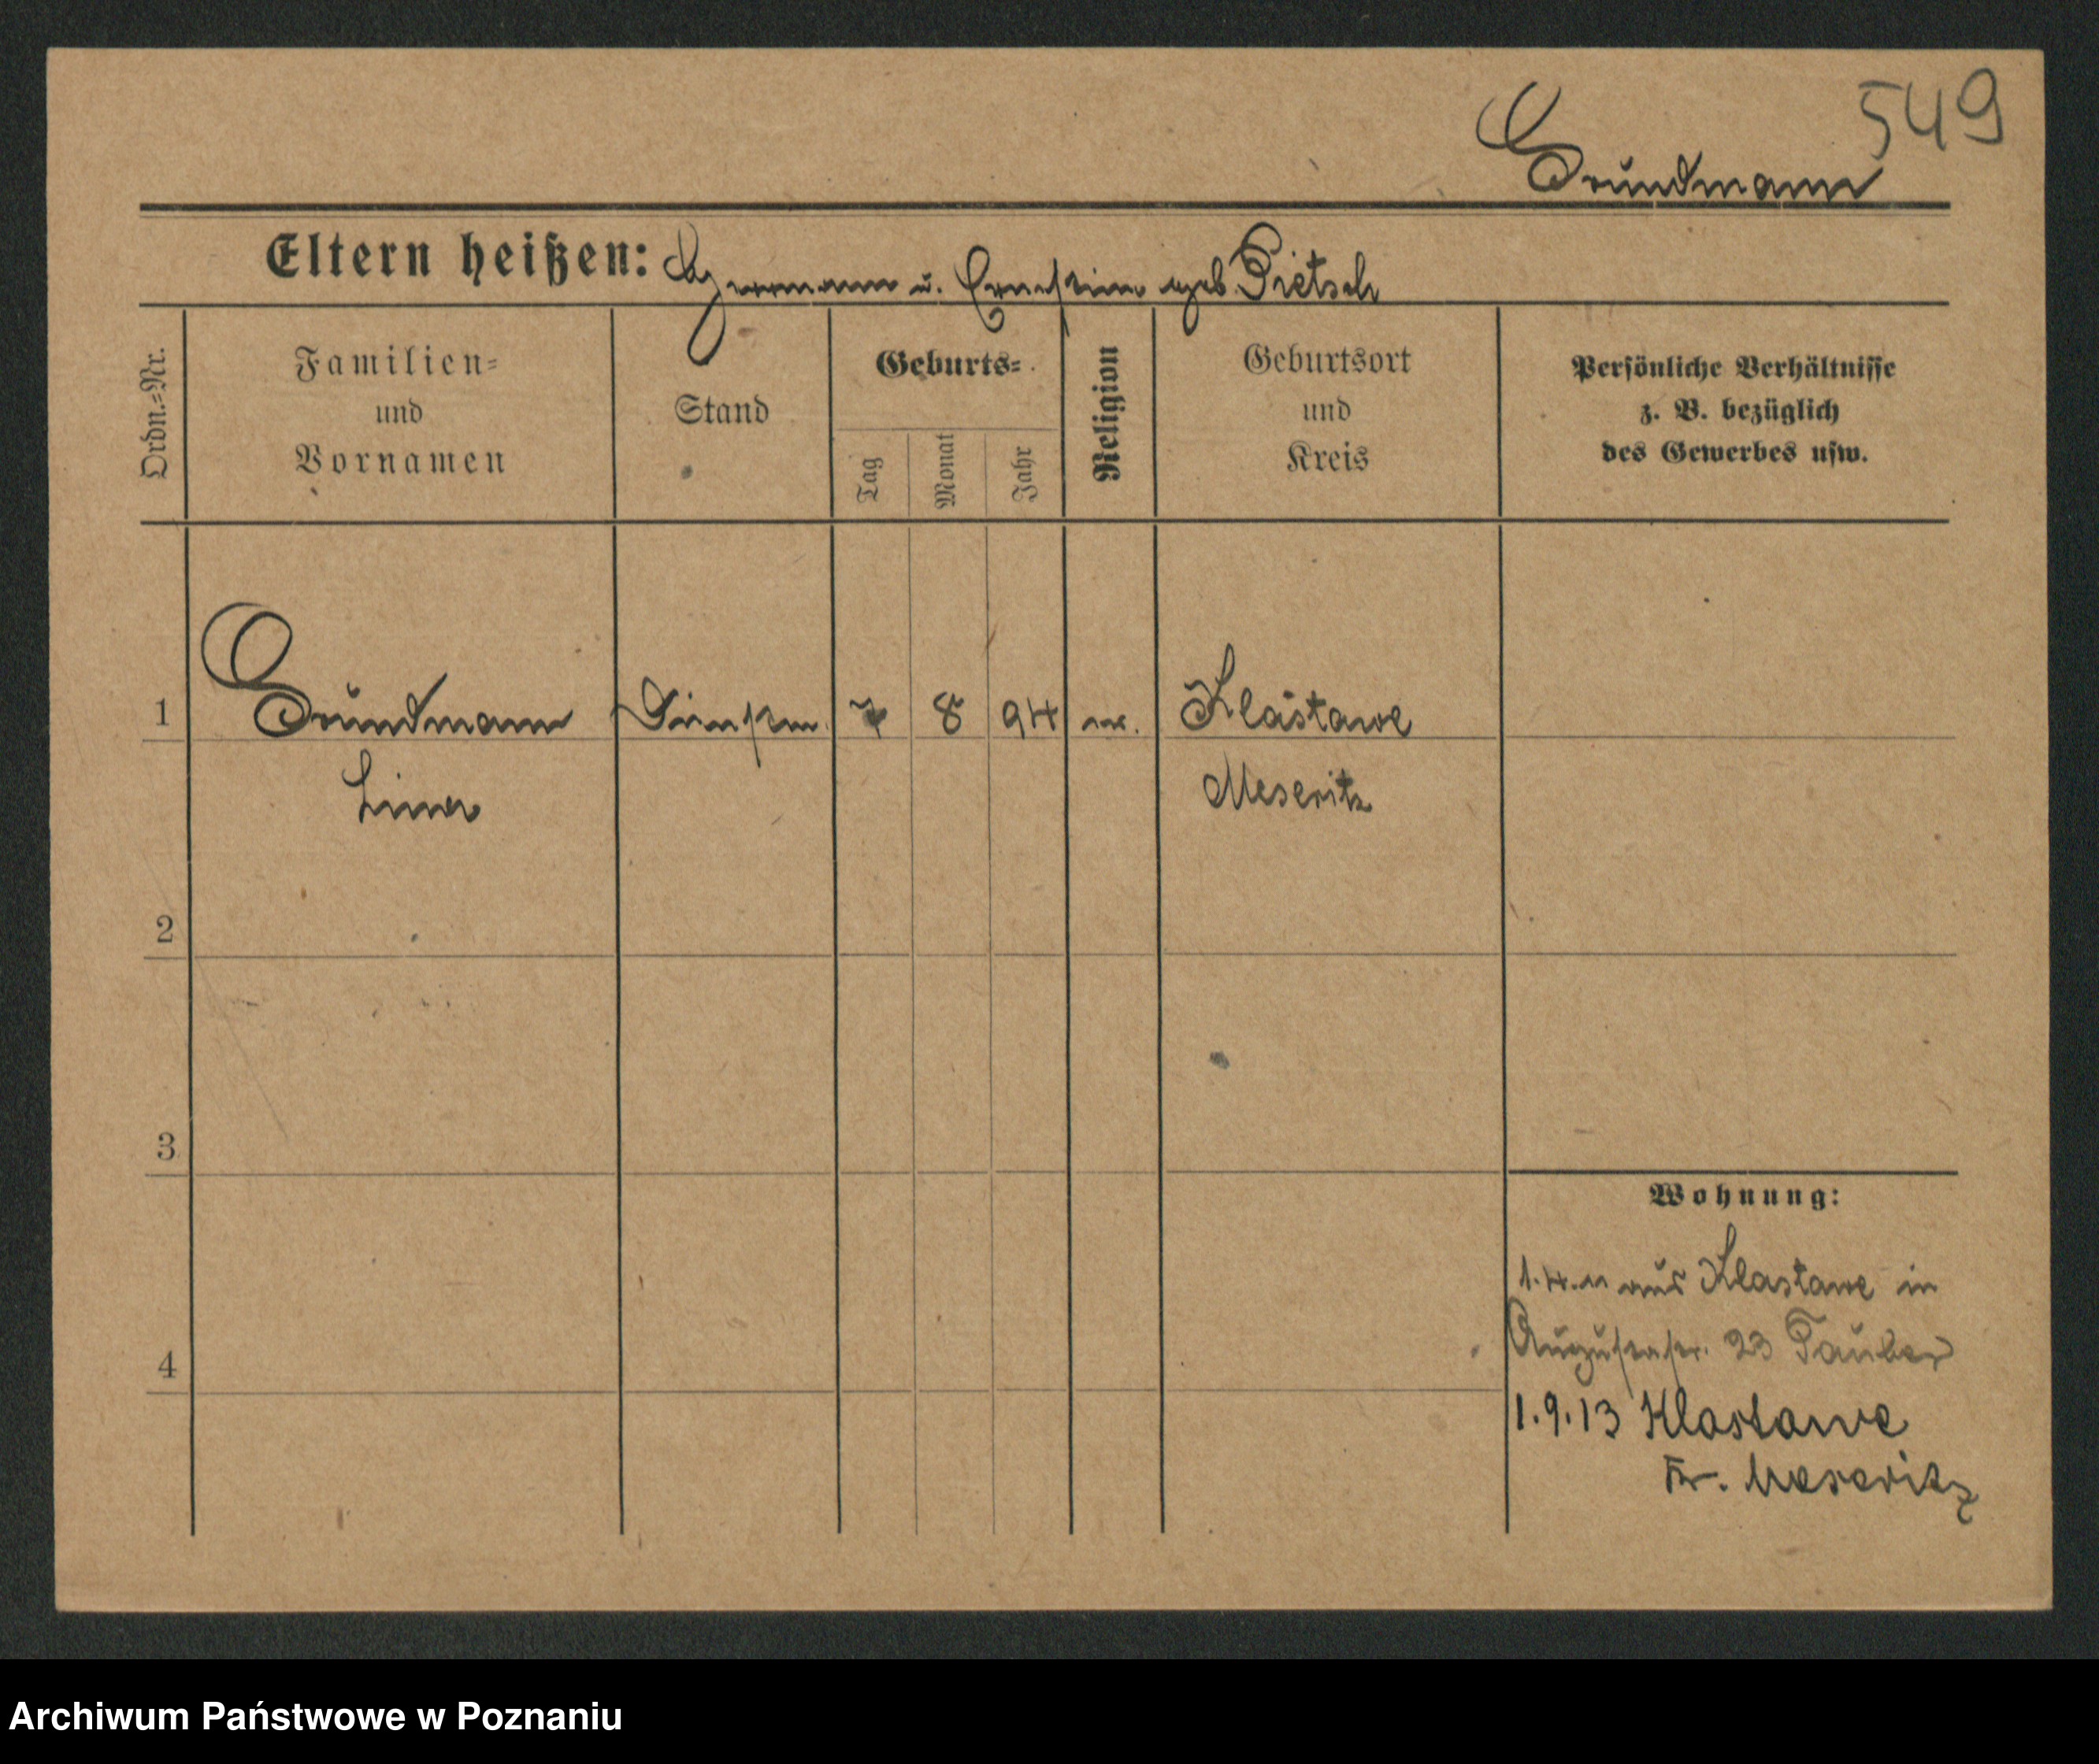 549
Grundmann
Eltern heißen: Hermann u. Ernestine geb. Pietsch
Ordn.=Nr.
Familien= und Vornamen
Stand
Geburts=
Tag
Monat
Jahr
Religion
Geburtsort und Kreis
Persönliche Verhältnisse z. B. bezüglich des Gewerbes usw.
1 Grundmann 7 8 94 ev. Klastawe
Lina Meseritz
2
3
4
Wohnung:
1.4.11 aus Klastawe in
Augustastr. 23 Tauber
1.9.13 Klastawe
Kr. Meseritz
Archiwum Państwowe w Poznaniu